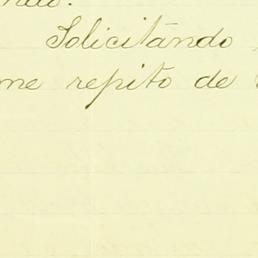 Solicitando
me repito de